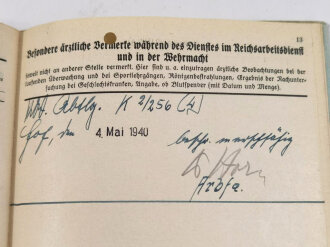 13
Besondere ärztliche Vermerke während des Dienstes im Reichsarbeitsdienst
und in der Wehrmacht
Soweit nicht an anderer Stelle vermerkt. Hier sind u. a. einzutragen ärztliche Beobachtungen bei der
laufenden Überwachung und bei Sportlehrgängen, Röntgenbestrahlungen, Ergebnis der Nachunter-
suchung bei Geschlechtskranken, Angabe, ob Blutspender (mit Datum und Menge).
Abtlg. K 2/256
Hof, den 4. Mai 1940